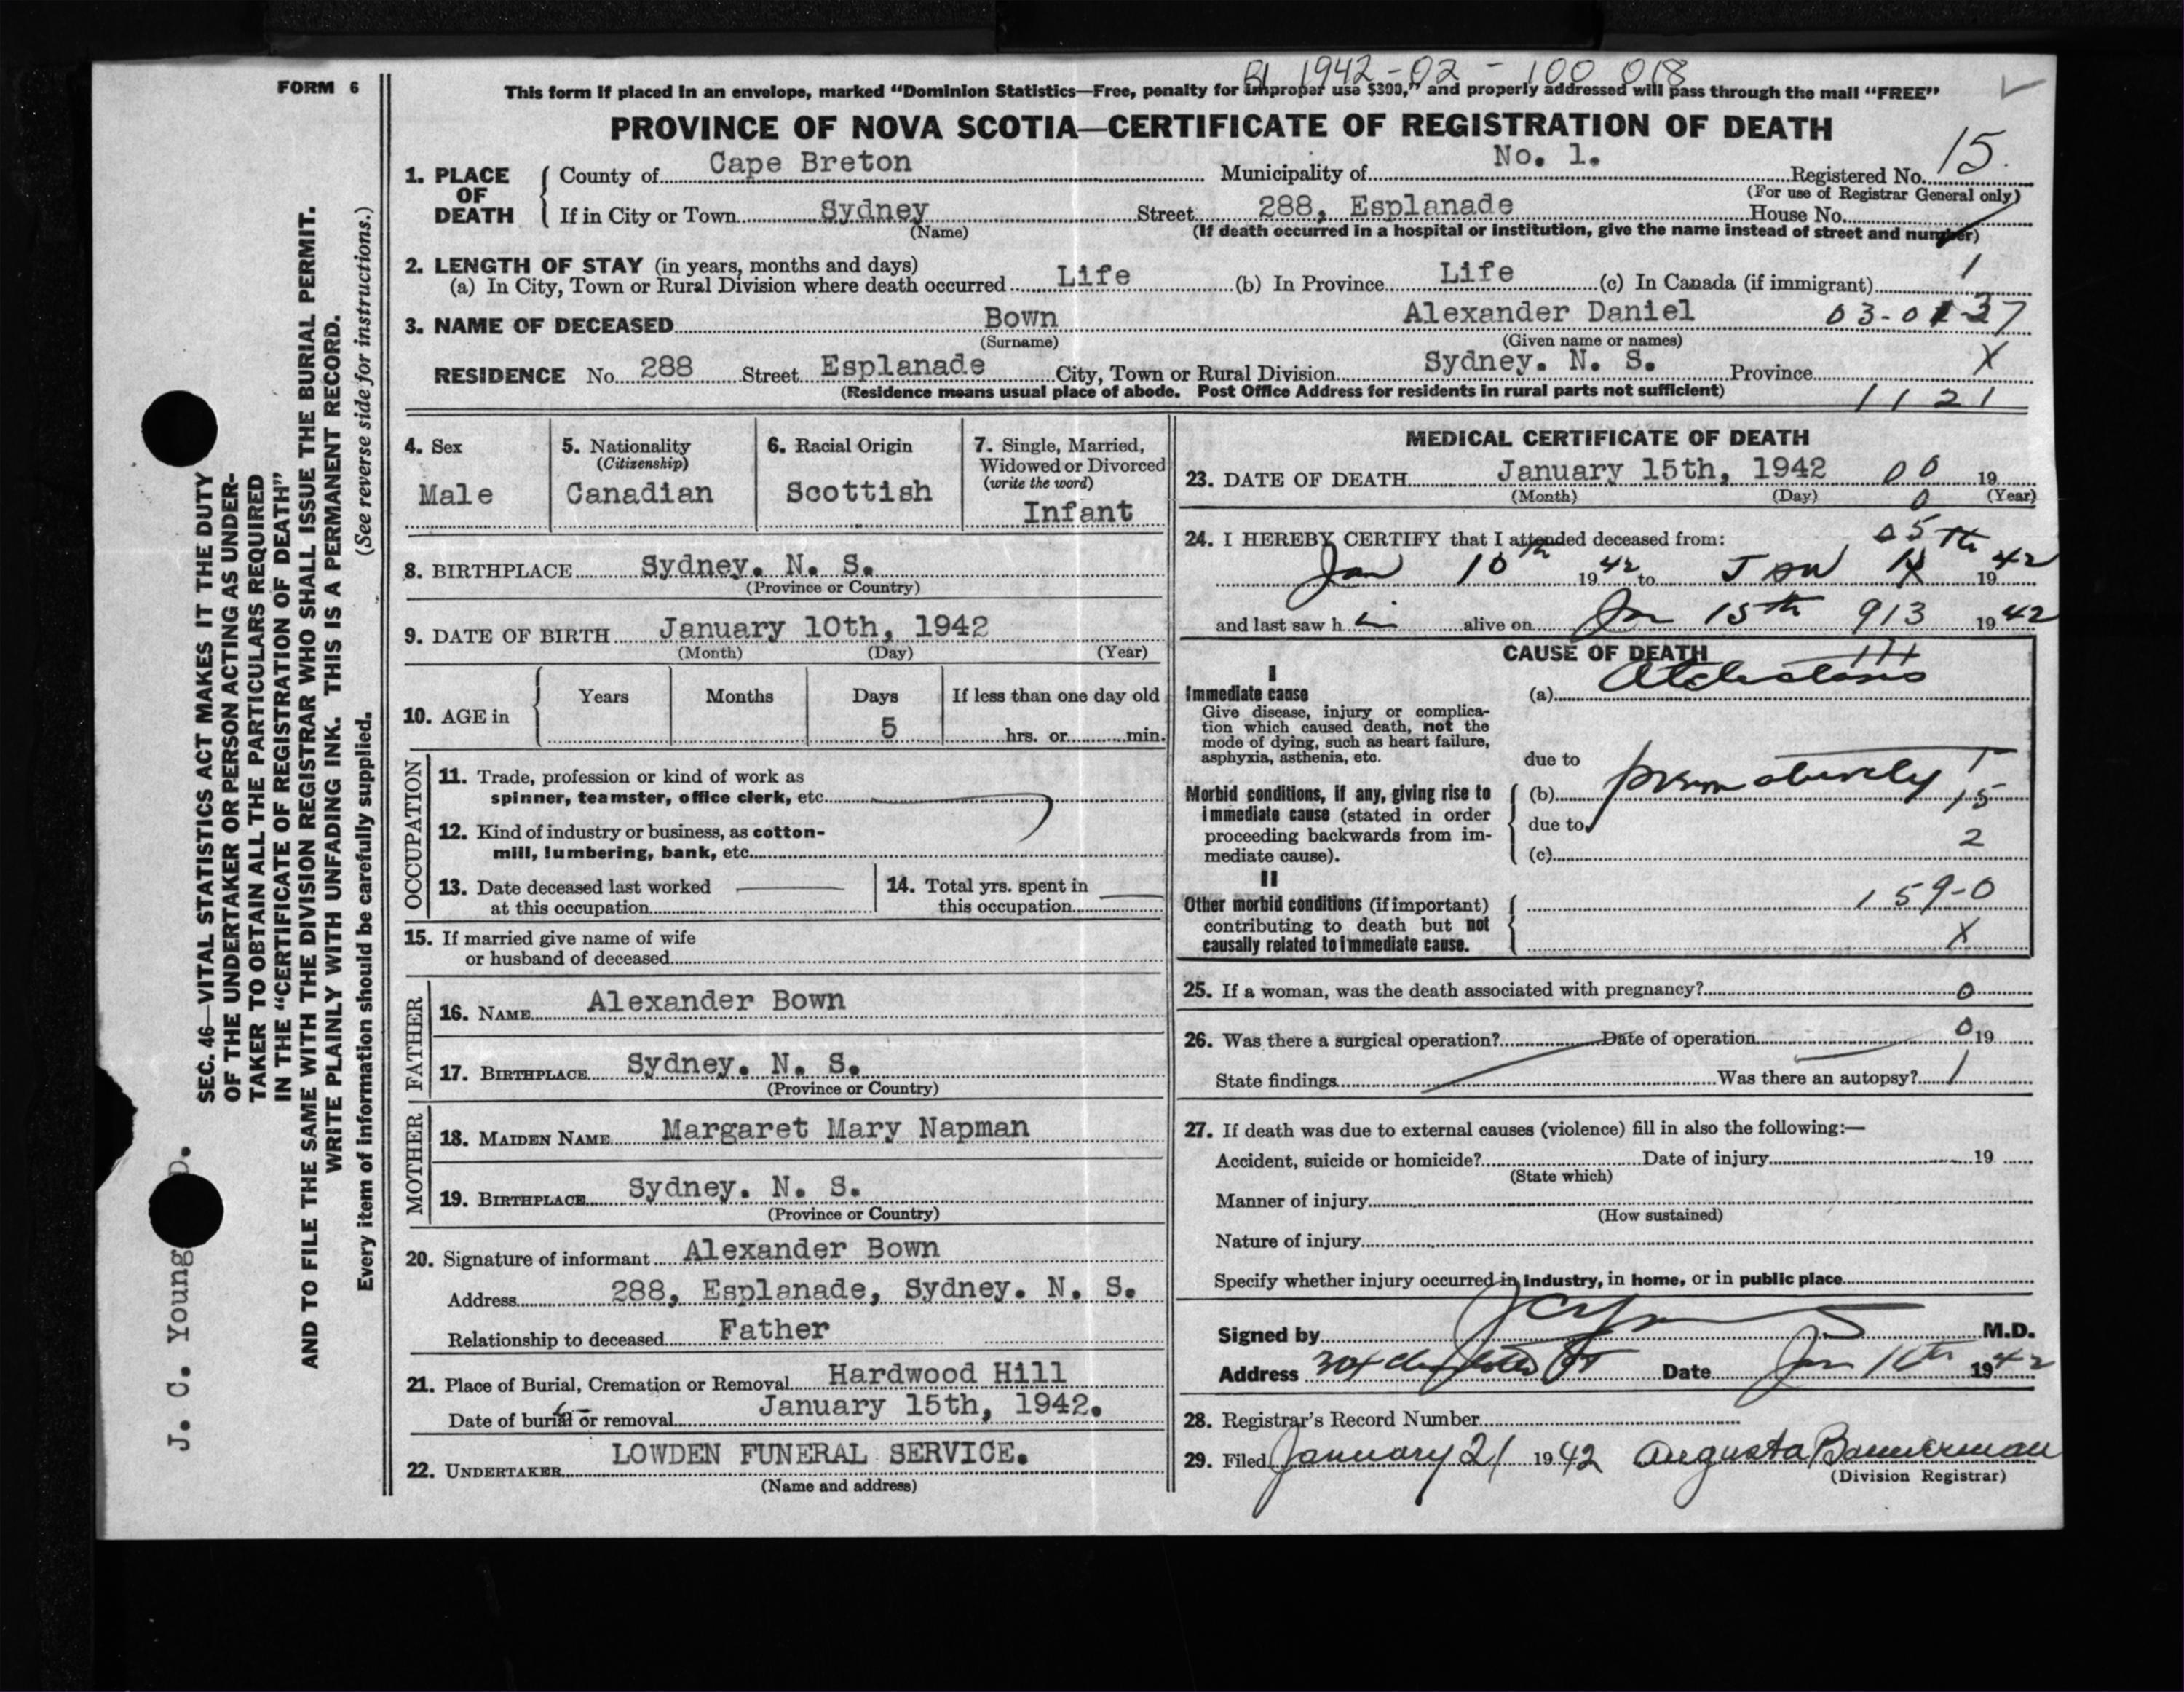 FORM 6
BL 1942-02-100 018
This form if placed in an envelope, marked “Dominion Statistics—Free, penalty for improper use $300,” and properly addressed will pass through the mail “FREE”
PROVINCE OF NOVA SCOTIA—CERTIFICATE OF REGISTRATION OF DEATH
1. PLACE OF DEATH
County of Cape Breton Municipality of No. 1. Registered No. 15.
(For use of Registrar General only)
If in City or Town Sydney Street 288, Esplanade House No.
(Name) (If death occurred in a hospital or institution, give the name instead of street and number)
2. LENGTH OF STAY (in years, months and days) 1
(a) In City, Town or Rural Division where death occurred Life (b) In Province Life (c) In Canada (if immigrant)
3. NAME OF DECEASED Bown Alexander Daniel
(Surname) (Given name or names)
RESIDENCE No. 288 Street Esplanade City, Town or Rural Division Sydney. N. S. Province X
(Residence means usual place of abode. Post Office Address for residents in rural parts not sufficient) 1121
4. Sex
Male
5. Nationality
(Citizenship)
Canadian
6. Racial Origin
Scottish
7. Single, Married,
Widowed or Divorced
(write the word)
Infant
8. BIRTHPLACE Sydney. N. S.
(Province or Country)
9. DATE OF BIRTH January 10th, 1942
(Month) (Day) (Year)
10. AGE in Years Months Days If less than one day old
5 hrs. or min.
OCCUPATION
11. Trade, profession or kind of work as
spinner, teamster, office clerk, etc.
12. Kind of industry or business, as cotton-
mill, lumbering, bank, etc.
13. Date deceased last worked
at this occupation
14. Total yrs. spent in
this occupation
15. If married give name of wife
or husband of deceased
FATHER
16. NAME Alexander Bown
17. BIRTHPLACE Sydney. N. S.
(Province or Country)
MOTHER
18. MAIDEN NAME Margaret Mary Napman
19. BIRTHPLACE Sydney. N. S.
(Province or Country)
20. Signature of informant Alexander Bown
Address 288, Esplanade, Sydney. N. S.
Relationship to deceased Father
21. Place of Burial, Cremation or Removal Hardwood Hill
Date of burial or removal January 15th, 1942.
22. UNDERTAKER LOWDEN FUNERAL SERVICE.
(Name and address)
MEDICAL CERTIFICATE OF DEATH
23. DATE OF DEATH January 15th, 1942 00 19
(Month) (Day) 0 (Year)
24. I HEREBY CERTIFY that I attended deceased from:
Jan 10th 1942 to Jan 1942
and last saw h alive on Jan 15th 913 1942
CAUSE OF DEATH
I
Immediate cause
Give disease, injury or complica-
tion which caused death, not the
mode of dying, such as heart failure,
asphyxia, asthenia, etc.
(a) Atelectasis
due to
Morbid conditions, if any, giving rise to
immediate cause (stated in order
proceeding backwards from im-
mediate cause).
(b) 15
due to
(c) 2
II
Other morbid conditions (if important)
contributing to death but not
causally related to immediate cause.
159-0
X
25. If a woman, was the death associated with pregnancy? 0
26. Was there a surgical operation? Date of operation 0 19
State findings Was there an autopsy? 1
27. If death was due to external causes (violence) fill in also the following:—
Accident, suicide or homicide? Date of injury 19
(State which)
Manner of injury
(How sustained)
Nature of injury
Specify whether injury occurred in industry, in home, or in public place
Signed by M.D.
Address Date Jan 1942
28. Registrar's Record Number
29. Filed January 21 1942 Augusta Bannerman
(Division Registrar)
SEC. 46—VITAL STATISTICS ACT MAKES IT THE DUTY
OF THE UNDERTAKER OR PERSON ACTING AS UNDER-
TAKER TO OBTAIN ALL THE PARTICULARS REQUIRED
IN THE “CERTIFICATE OF REGISTRATION OF DEATH”
AND TO FILE THE SAME WITH THE DIVISION REGISTRAR WHO SHALL ISSUE THE BURIAL PERMIT.
WRITE PLAINLY WITH UNFADING INK. THIS IS A PERMANENT RECORD.
Every item of information should be carefully supplied. (See reverse side for instructions.)
J. C. Young D.